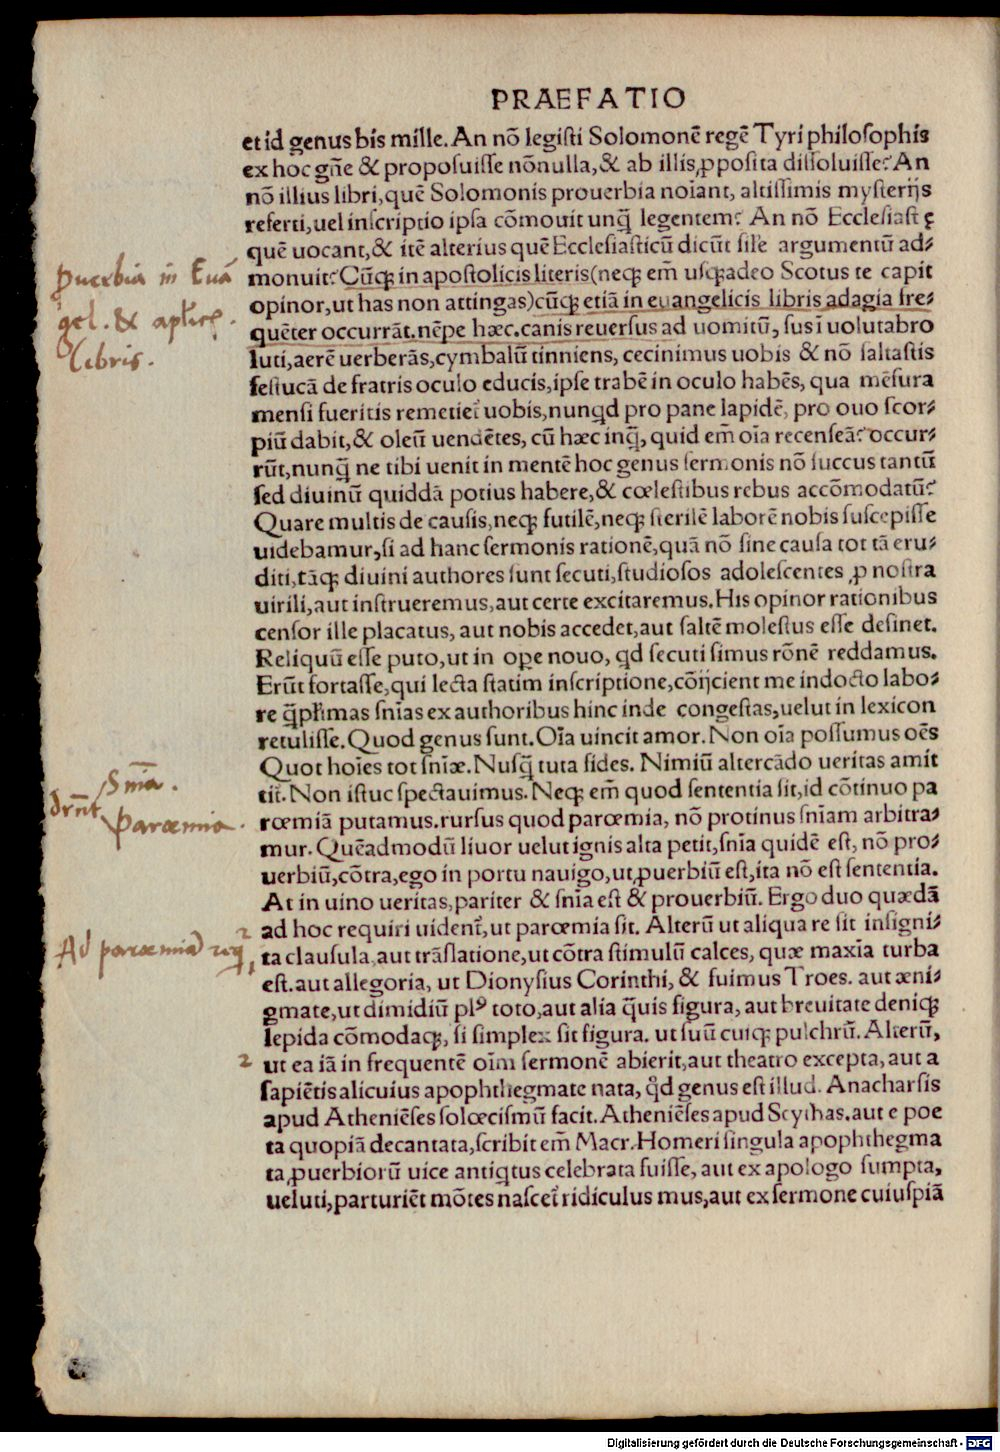 PRAEFATIO
et id genus bis mille. An nõ legisti Solomonẽ regẽ Tyri philosophis
ex hoc gñe & proposuisse nõnulla, & ab illis ꝓposita dissoluisse? An
nõ illius libri, quẽ Solomonis prouerbia noĩant, altissimis mysterijs
referti, uel inscriptio ipsa cõmouit unq̃ legentem? An nõ Ecclesiastę
quẽ uocant, & itẽ alterius quẽ Ecclesiasticũ dicũt sil̃e argumentũ ad-
monuit? Cũꝗ in apostolicis literis (neꝗ em̃ usꝗadeo Scotus te capit
opinor, ut has non attingas) cũꝗ etiã in euangelicis libris adagia fre-
quẽter occurrãt. nẽpe hæc. canis reuersus ad uomitũ, sus ĩ uolutabro
luti, aerẽ uerberãs, cymbalũ tinniens, cecinimus uobis & nõ saltastis
festucã de fratris oculo educis, ipse trabẽ in oculo habẽs, qua mẽsura
mensi fueritis remetiet̃ uobis, nunqd pro pane lapidẽ, pro ouo scor-
piũ dabit, & oleũ uendẽtes, cũ hæc inq̃, quid em̃ oĩa recenseã? occur-
rũt, nunq̃ ne tibi uenit in mentẽ hoc genus sermonis nõ succus tantũ
sed diuinũ quiddã potius habere, & cœlestibus rebus accõmodatũ?
Quare multis de causis, neꝗ futilẽ, neꝗ sterilẽ laborẽ nobis suscepisse
uidebamur, si ad hanc sermonis rationẽ, quã nõ sine causa tot tã eru-
diti, tãꝗ diuini authores sunt secuti, studiosos adolescentes ꝓ nostra
uirili, aut instrueremus, aut certe excitaremus. His opinor rationibus
censor ille placatus, aut nobis accedet, aut saltẽ molestus esse desinet.
Reliquũ esse puto, ut in oꝑe nouo, qd secuti simus rõnẽ reddamus.
Erũt fortasse, qui lecta statim inscriptione, cõijcient me indocto labo-
re q̃pl̃imas sñias ex authoribus hinc inde congestas, uelut in lexicon
retulisse. Quod genus sunt. Oĩa uincit amor. Non oĩa possumus oẽs
Quot hoĩes tot sñiæ. Nusq̃ tuta fides. Nimiũ altercãdo ueritas amit
tit̃. Non istuc spectauimus. Neꝗ em̃ quod sententia sit, id cõtinuo pa
rœmiã putamus. rursus quod parœmia, nõ protinus sñiam arbitra-
mur. Quẽadmodũ liuor uelut ignis alta petit, sñia quidẽ est, nõ pro-
uerbiũ, cõtra, ego in portu nauigo, ut ꝓuerbiũ est, ita nõ est sententia.
At in uino ueritas, pariter & sñia est & prouerbiũ. Ergo duo quædã
ad hoc requiri uident̃, ut parœmia sit. Alterũ ut aliqua re sit insigni-
ta clausula, aut trãslatione, ut cõtra stimulũ calces, quæ maxĩa turba
est. aut allegoria, ut Dionysius Corinthi, & fuimus Troes. aut æni-
gmate, ut dimidiũ plꝰ toto, aut alia q̃uis figura, aut breuitate deniꝗ
lepida cõmodaꝗ, si simplex sit figura. ut suũ cuiꝗ pulchrũ. Alterũ,
ut ea iã in frequentẽ oĩm sermonẽ abierit, aut theatro excepta, aut a
sapiẽtis alicuius apophthegmate nata, qd̃ genus est illud. Anacharsis
apud Atheniẽses solœcismũ facit. Atheniẽses apud Scythas. aut e poe
ta quopiã decantata, scribit em̃ Macr. Homeri singula apophthegma
ta, ꝓuerbiorũ uice antiqtus celebrata fuisse, aut ex apologo sumpta,
ueluti, parturiẽt mõtes nascet̃ ridiculus mus, aut ex sermone cuiuspiã
ꝓuerbia in Euã
gel. & apl̃icꝭ.
libris.
Sñia.
drñt
Parœmia.
Ad parœmiã req̃.
1
2
2
Digitalisierung gefördert durch die Deutsche Forschungsgemeinschaft - DFG